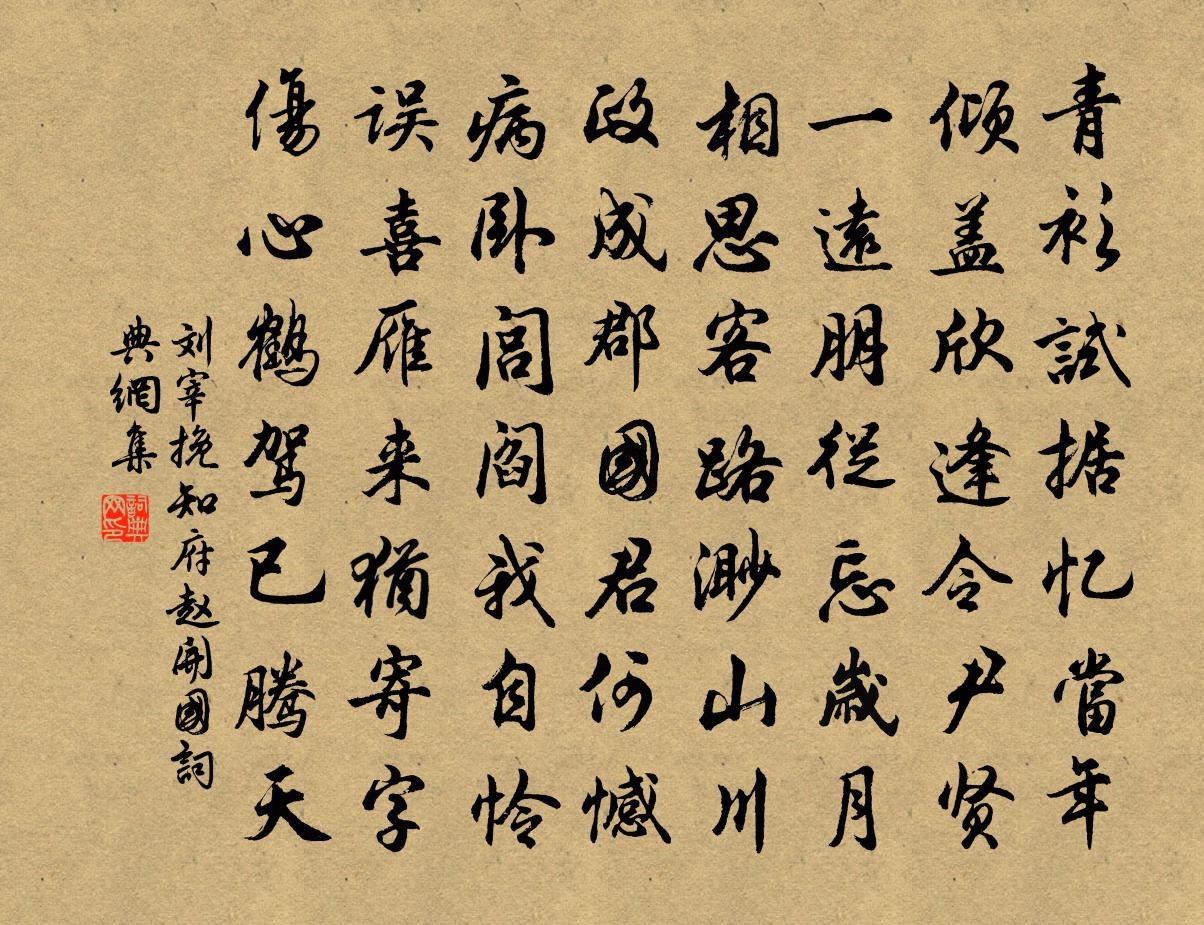 青衫試据忆當年
倾盖欣逢令尹贤
一遠朋従忘歳月
相思客路渺山川
政成郡國君何憾
病卧閭阎我自怜
误喜雁来猶寄字
傷心鶴驾已腾天
刘宰挽知府赵開國詞
典網集
詞典網印